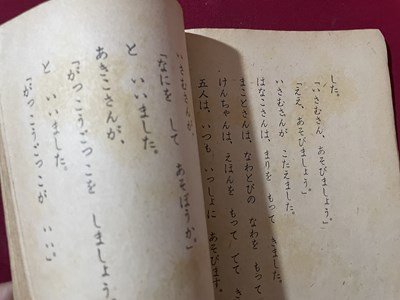 した。
「いさむさん、あそびましょう。」
「ええ、あそびましょう。」
いさむさんが こたえました。
はなこさんは、まりを もって きました。
まことさんは、なわとびの なわを もって
けんちゃんは、えほんを もって でて き
五人は、いつも いっしょに あそびます。
いさむさんが、
「なにを して あそぼうか。」
と いいました。
あきこさんが、
「がっこうごっこを しましょう。」
と いいました。
「がっこうごっこが いい。」